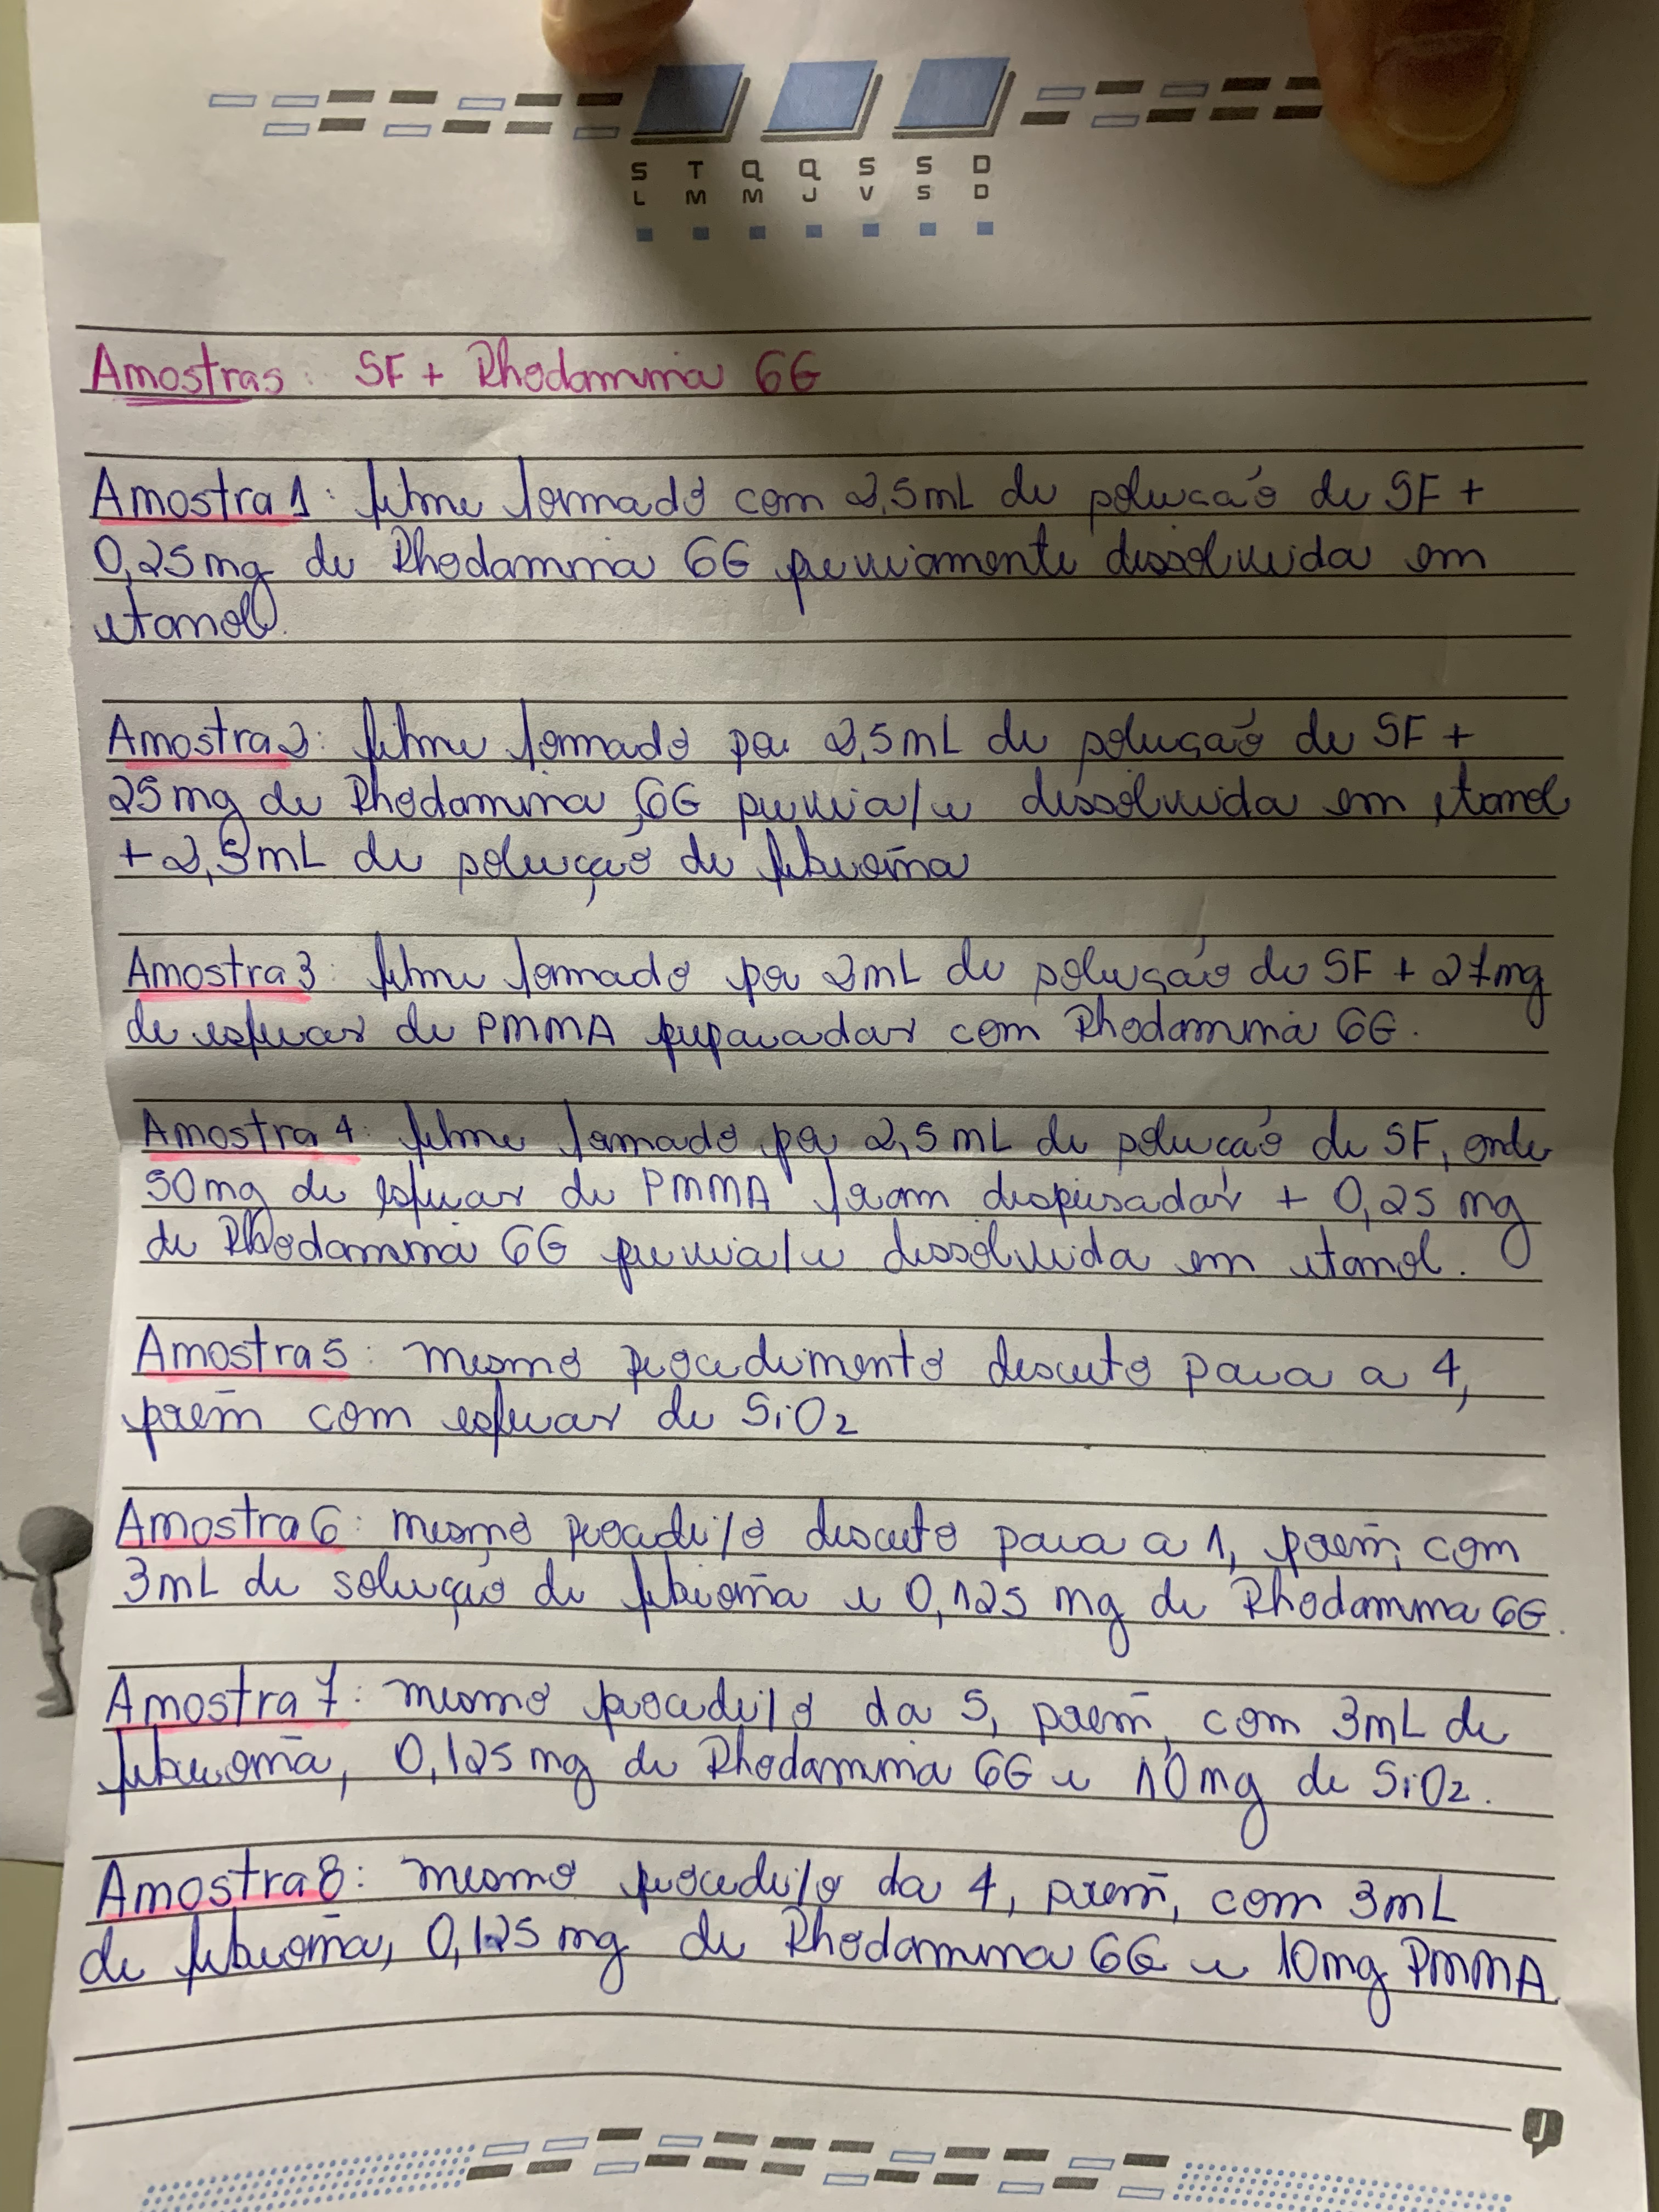 S T Q Q S S D
L M M J V S D
Amostras: SF + Rhodamina 6G
Amostra 1: filme formado com 2,5mL de solucaó de SF +
0,25mg de Rhodamina 6G previamente dissolvida em
etanol.
Amostra 2: filme formado por 2,5mL de soluçaó de SF +
25mg de Rhodamina 6G previa/e dissolvida em etanol
+ 2,5mL de solução de fibroína
Amostra 3: filme formado por 2mL de solução de SF + 27mg
de esferas de PMMA preparadas com Rhodamina 6G.
Amostra 4: filme formado por 2,5mL de solucaó de SF, onde
50mg de esferas de PMMA foram dispersadas + 0,25 mg
de Rhodamina 6G previa/e dissolvida em etanol.
Amostra 5: mesmo procedimento descrito para a 4,
porém com esferas de SiO2
Amostra 6: mesmo procedi/o descrito para a 1, porém, com
3mL de solução de fibroína e 0,125 mg de Rhodamina 6G.
Amostra 7: mesmo procedi/o da 5, porém, com 3mL de
fibroína, 0,125mg de Rhodamina 6G e 10mg de SiO2.
Amostra 8: mesmo procedi/o da 4, porém, com 3mL
de fibroína, 0,125 mg de Rhodamina 6G e 10mg PMMA
J